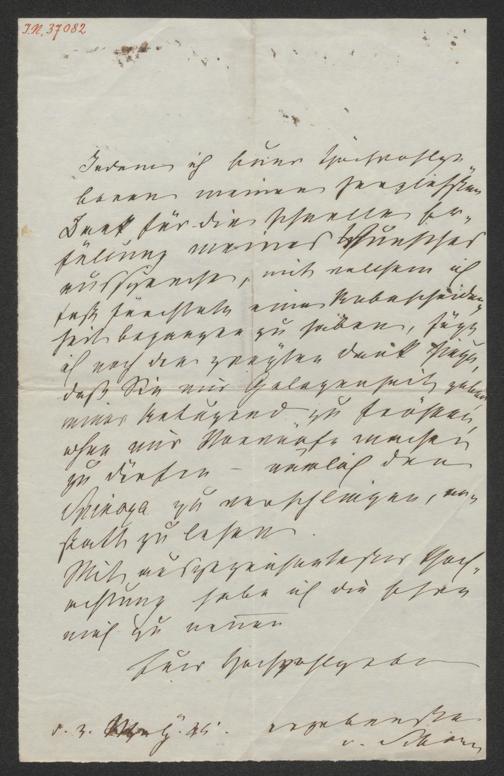 I.N. 37082
Indem ich Euer Hochwohlge-
boren meinen herzlichsten
Dank für die schnelle Er-
füllung meines Wunsches
ausspreche, mit welchem ich
fast fürchtete eine Unbescheiden-
heit begangen zu haben, füge
ich noch den zweyten Dank hinzu,
daß Sie mir Gelegenheit geben
einer Untugend zu fröhnen,
ohne mir Vorwürfe machen
zu dürfen – nämlich den
Spinoza zu verschlingen, an-
statt zu lesen.
Mit ausgezeichnetester Hoch-
achtung habe ich die Ehre
mich zu nennen
Euer Hochwohlgeboren
d. 3. 45. ergebenster
v.